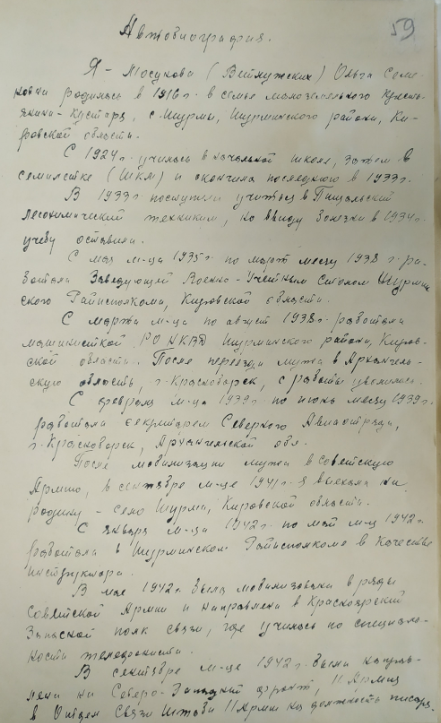 59
Автобиография.
Я - Мосунова (Ветлужских) Ольга Семе-
новна родилась в 1916 г. в семье малоземельного кресть-
янина-кустаря, с. Шурма, Шурминского района, Ки-
ровской области.
С 1924 г. училась в начальной школе, затем в
семилетке (ШКМ) и окончила последнюю в 1933 г.
В 1933 г. поступила учиться в
лесохимический техникум, но ввиду болезни в 1934 г.
учебу оставила.
С мая м-ца 1935 г. по март месяц 1938 г. ра-
ботала Заведующей Военно-Учетным Столом Шурмин
ского Райисполкома, Кировской области.
С марта м-ца по август 1938 г. работала
машинисткой РО НКВД Шурминского района, Киров-
ской области. После переезда мужа в Архангель-
скую область, г. Красноборск, с работы уволилась.
С февраля м-ца 1939 г. по июнь месяц 1939 г.
работала секретарем Северного Авиаотряда,
г. Красноборск, Архангельской обл.
После мобилизации мужа в Советскую
Армию, в сентябре м-це 1941 г. я выехала на
родину - село Шурма, Кировской области.
С января м-ца 1942 г. по май м-ц 1942 г.
работала в Шурминском Райисполкоме в качестве
инструктора.
В мае 1942 г. была мобилизована в ряды
Советской Армии и направлена в Красноярский
Запасной полк связи, где училась по специаль-
ности телефониста.
В сентябре м-це 1942 г. была направ-
лена на Северо-Западный фронт, 11 Армия
в Отдел Связи Штаба 11 Армии на должность писаря.